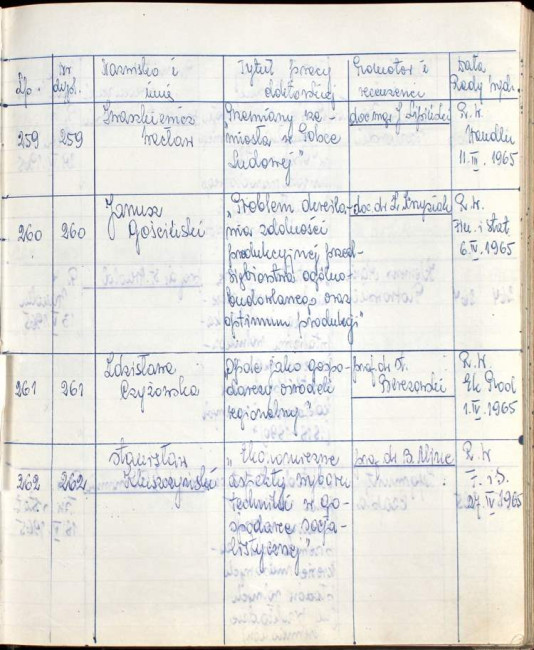 Lp. Nr dypl. Nazwisko i imię Tytuł pracy doktorskiej Promotor i recenzenci Data Rady Wydz.
259 259 Iwaszkiewicz Wacław
"Przemiany
miasta w Polsce
Ludowej"
doc mgr J.
R.W.
Handlu
11.III.1965
260 260 Janusz
Gościński
"Problem określa-
nia zdolności
produkcyjnej przed-
siębiorstwa ogólno-
budowlanego oraz
optimum produkcji"
doc. dr L. Krysiak
R.W.
Fin. i Stat
6.IV.1965
261 261 Zdzisława
Czyżowska
"Opole jako gospo-
darczy ośrodek
regionalny"
prof. dr St.
Berezowski
R.W.
Ek. Prod
1.IV.1965
262 262 Stanisław
Kluszczyński
"Ekonomiczne
aspekty wyboru
techniki w go-
spodarce socja-
listycznej"
prof. dr B. Minc
R.W.
27.IV.1965